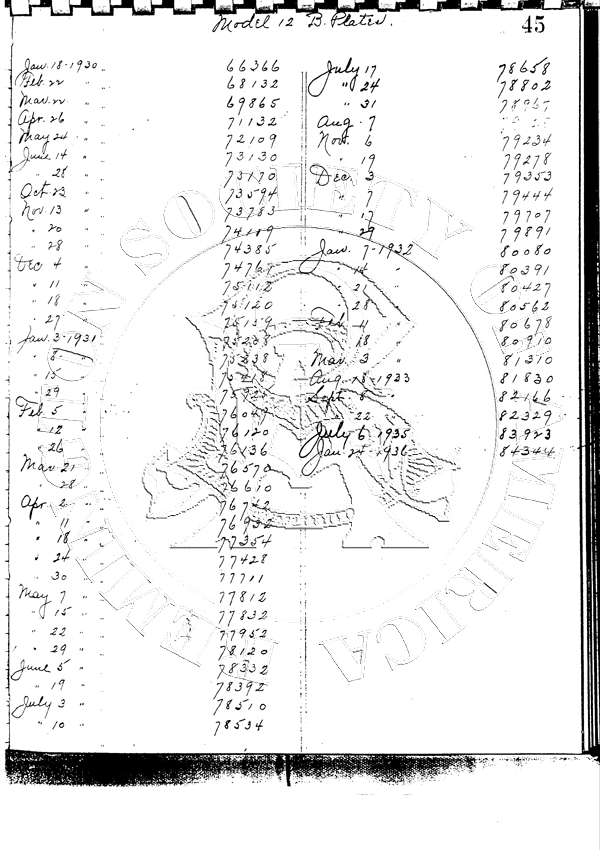 Model 12 B. Plates.
45
Jan. 18-1930 66366
Feb. 22 " 68132
Mar. 22 " 69865
Apr. 26 " 71132
May 24 " 72109
June 14 " 73130
" 28 " 73170
Oct 23 " 73594
Nov. 13 " 73783
" 20 " 74119
" 28 " 74385
Dec 4 " 74767
" 11 " 75112
" 18 " 75120
" 27 " 75159
Jan. 3-1931
" 8 " 75238
" 15 "
" 29
Feb. 5 " 76047
" 12 " 76120
" 26 " 76136
Mar 21 " 76570
" 28 " 76610
Apr. 2 " 76722
" 11 " 76932
" 18 " 77354
" 24 " 77428
" 30 " 77711
May 7 " 77812
" 15 " 77832
" 22 " 77952
" 29 " 78120
June 5 " 78332
" 19 " 78392
July 3 " 78510
" 10 " 78534
July 17 78658
" 24 78802
" 31
Aug. 7
Nov. 6 79234
" 19 79278
Dec. 3 79353
" 7 79444
" 17 79707
" 29 79891
Jan. 7-1932 80080
" 14 " 80391
" 21 " 80427
" 28 " 80562
Feb. 11 " 80678
" 18 " 80910
Mar. 3 " 81310
Aug. 18-1933 81830
Sept. 8 " 82166
" 22 " 82329
July 6 1935 83923
Jan 24-1936 84344
REMINGTON SOCIETY OF AMERICA